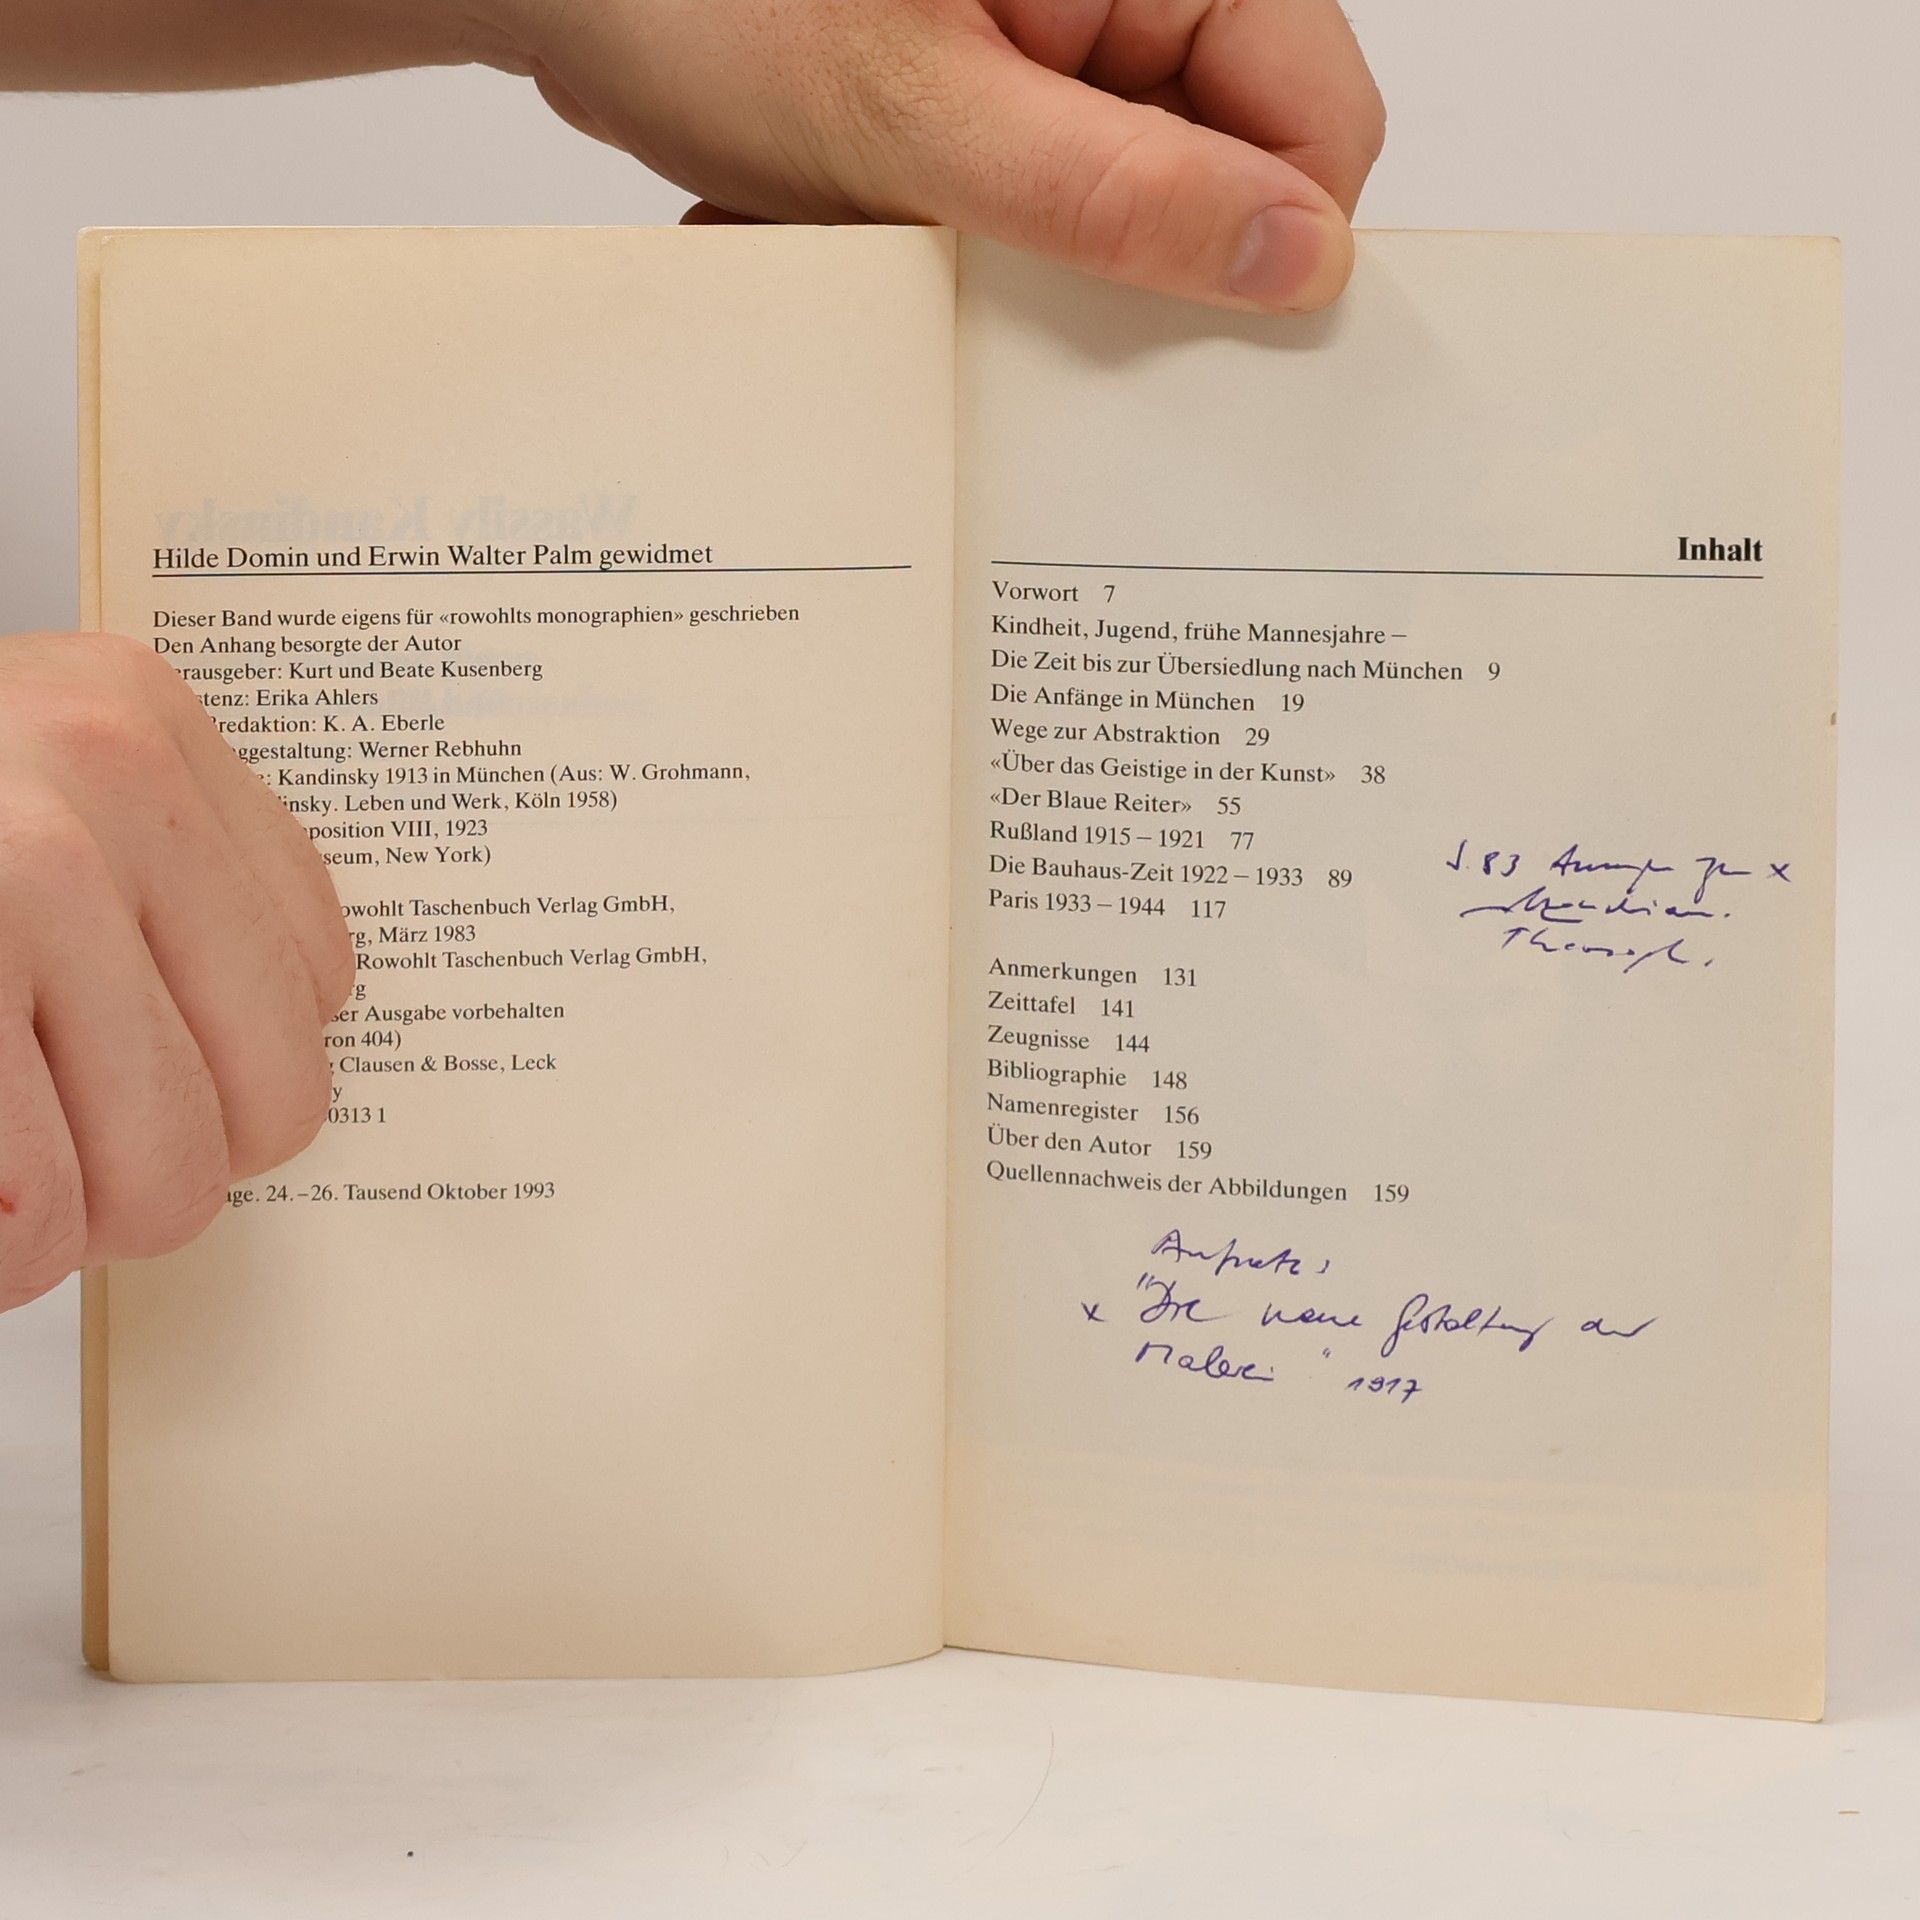 Wassily Kandinsky
Hilde Domin und Erwin Walter Palm gewidmet
Dieser Band wurde eigens für «rowohlts monographien» geschrieben
Den Anhang besorgte der Autor
erausgeber: Kurt und Beate Kusenberg
stenz: Erika Ahlers
redaktion: K. A. Eberle
ggestaltung: Werner Rebhuhn
: Kandinsky 1913 in München (Aus: W. Grohmann,
insky. Leben und Werk, Köln 1958)
position VIII, 1923
seum, New York)
owohlt Taschenbuch Verlag GmbH,
rg, März 1983
Rowohlt Taschenbuch Verlag GmbH,
rg
ser Ausgabe vorbehalten
ron 404)
g Clausen & Bosse, Leck
y
0313 1
age. 24.–26. Tausend Oktober 1993
Inhalt
Vorwort 7
Kindheit, Jugend, frühe Mannesjahre –
Die Zeit bis zur Übersiedlung nach München 9
Die Anfänge in München 19
Wege zur Abstraktion 29
«Über das Geistige in der Kunst» 38
«Der Blaue Reiter» 55
Rußland 1915 – 1921 77
Die Bauhaus-Zeit 1922 – 1933 89
Paris 1933 – 1944 117
S. 83 x
Mondrian.
Theosoph.
Anmerkungen 131
Zeittafel 141
Zeugnisse 144
Bibliographie 148
Namenregister 156
Über den Autor 159
Quellennachweis der Abbildungen 159
x "Die neue Gestaltung der
Malerei" 1917